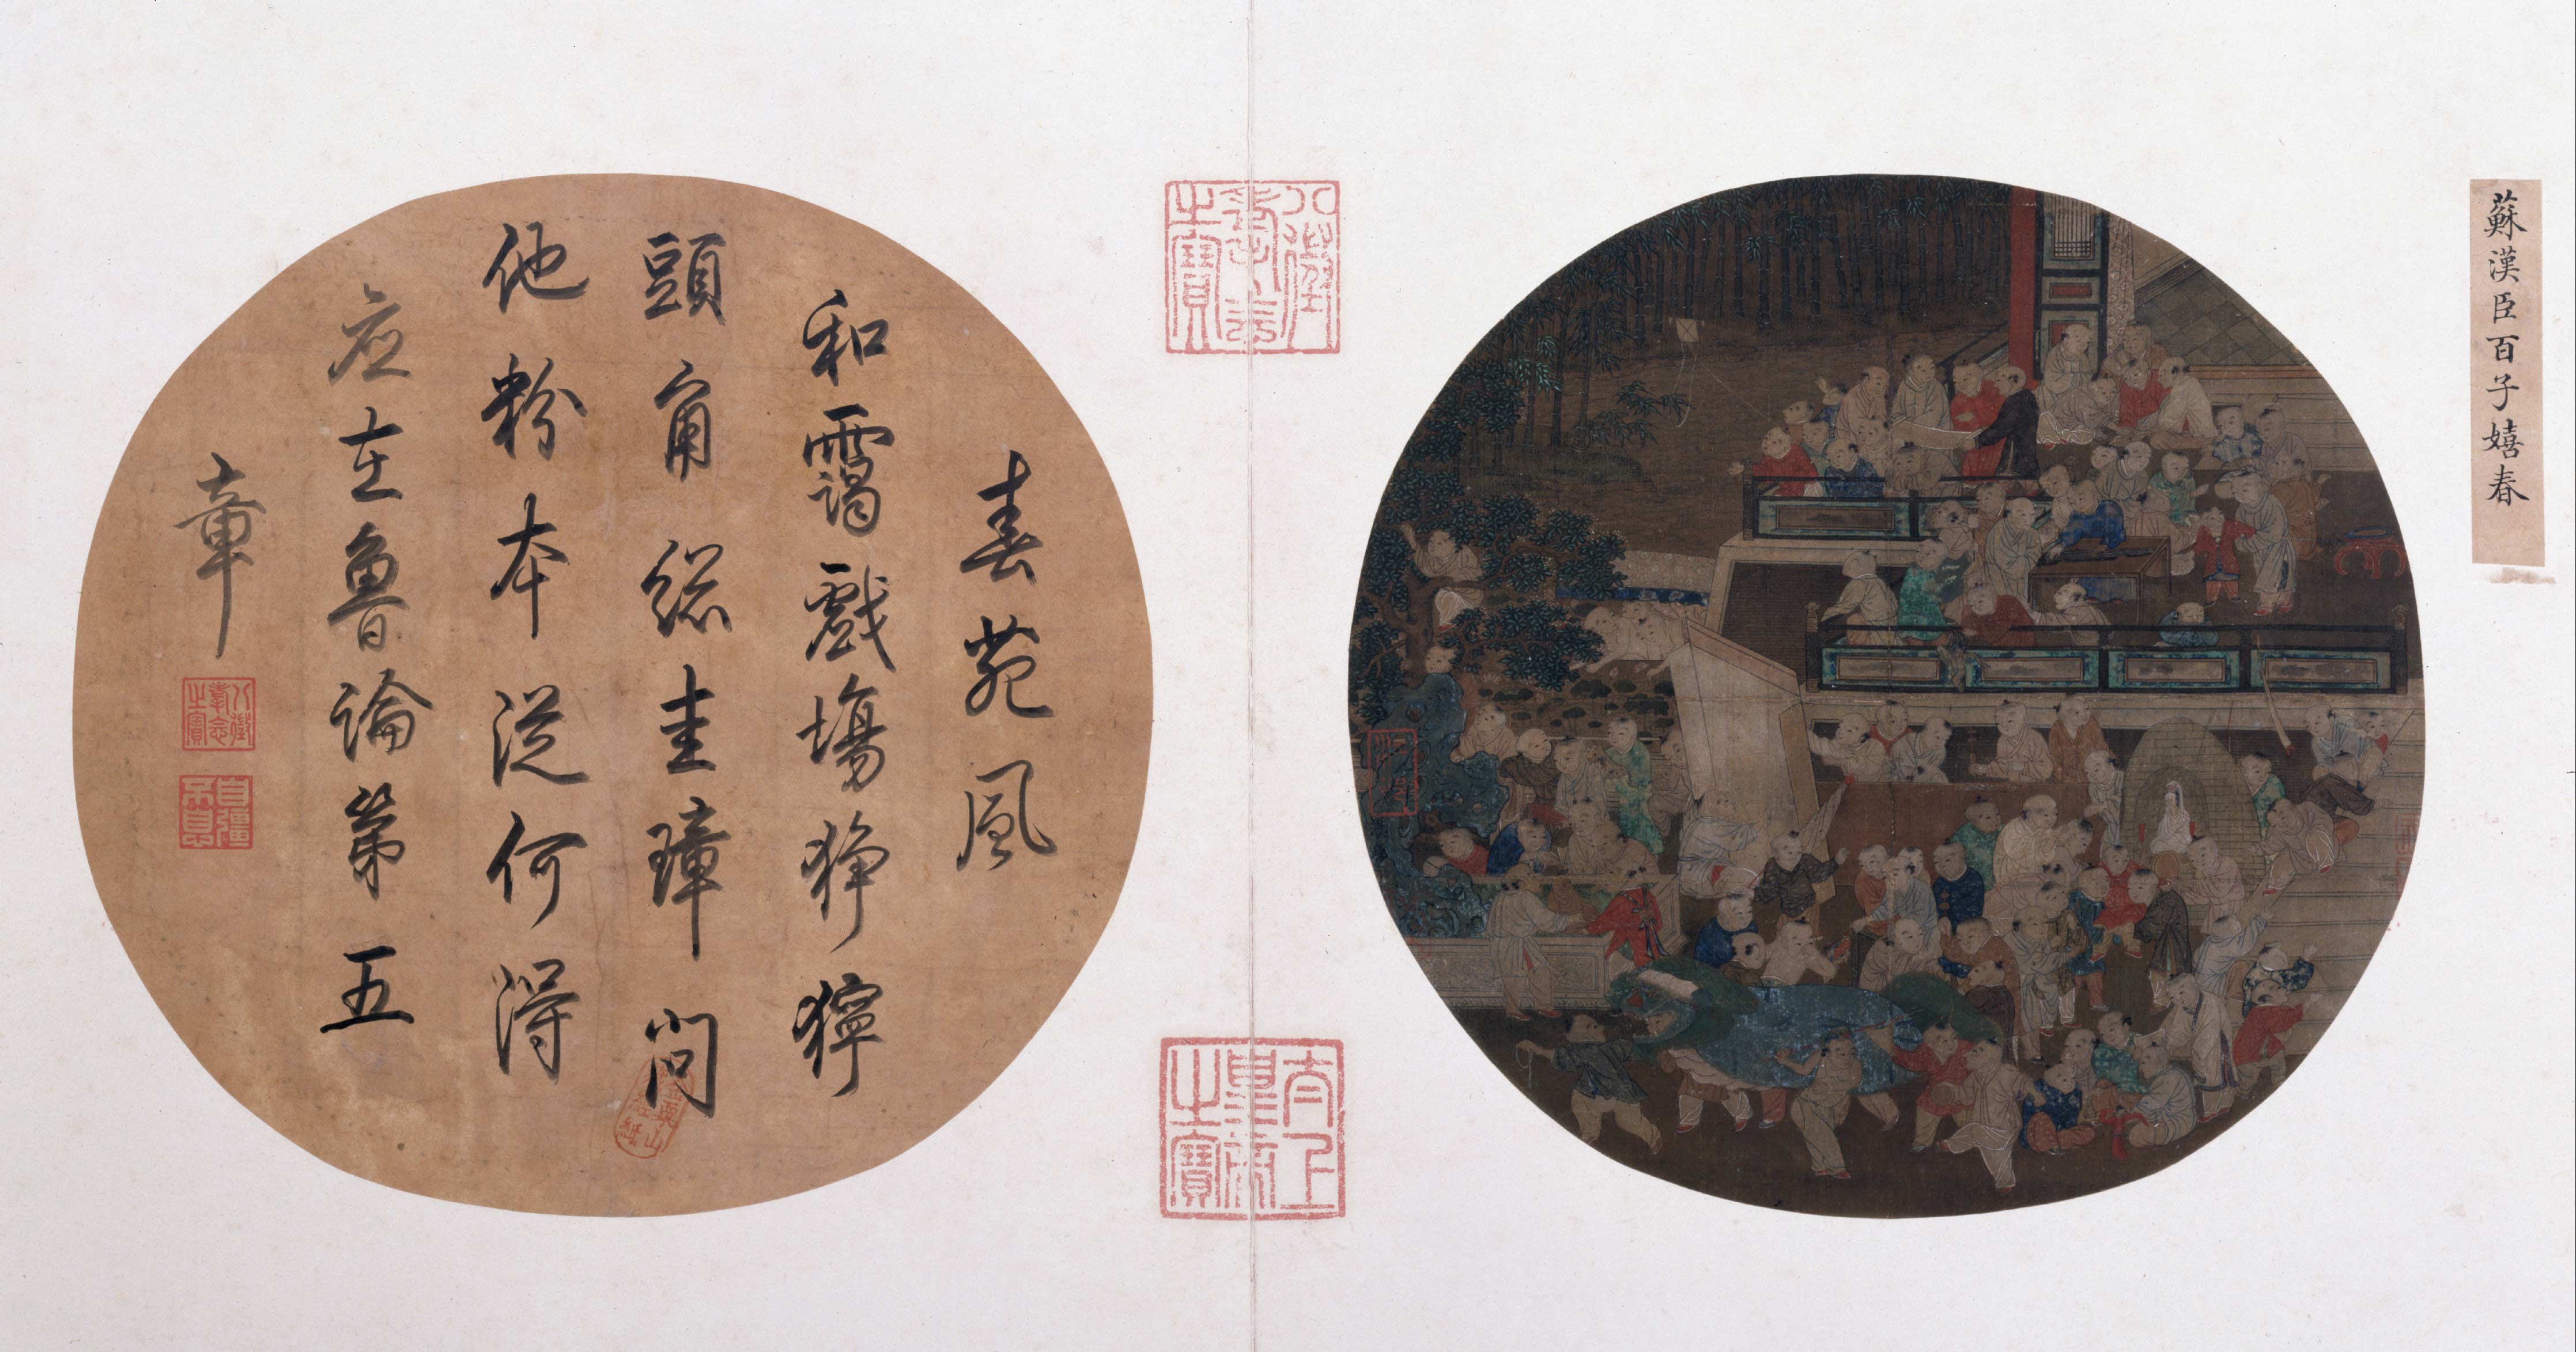 蘇漢臣百子嬉春
八徵耄念之寶
太上皇帝之寶
春苑風
和靄戲場猙獰
頭角總圭璋問
他粉本從何得
應在魯論第五
章
八徵耄念之寶
自彊不息